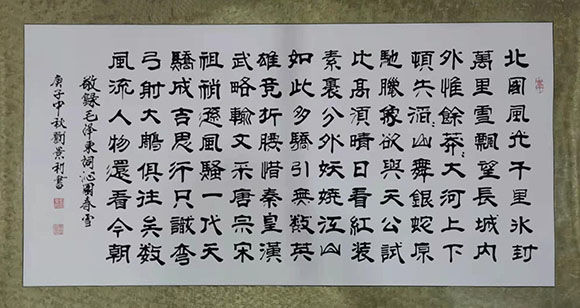 北國風光千里冰封
萬里雪飄望長城内
外惟餘莽々大河上下
頓失滔々山舞銀蛇原
馳臘象欲與天公試
比高須晴日看紅装
素裹分外妖嬈江山
如此多驕引無數英
雄竞折腰惜秦皇漢
武略輸文采唐宗宋
祖稍遜風騷一代天
驕成吉思汗只識彎
弓射大鵰俱往矣數
風流人物還看今朝
敬録毛澤東詞沁園春雪
庚子中秋劉景利書